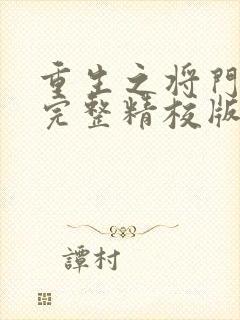 重生之将門
完整精校版
譚村